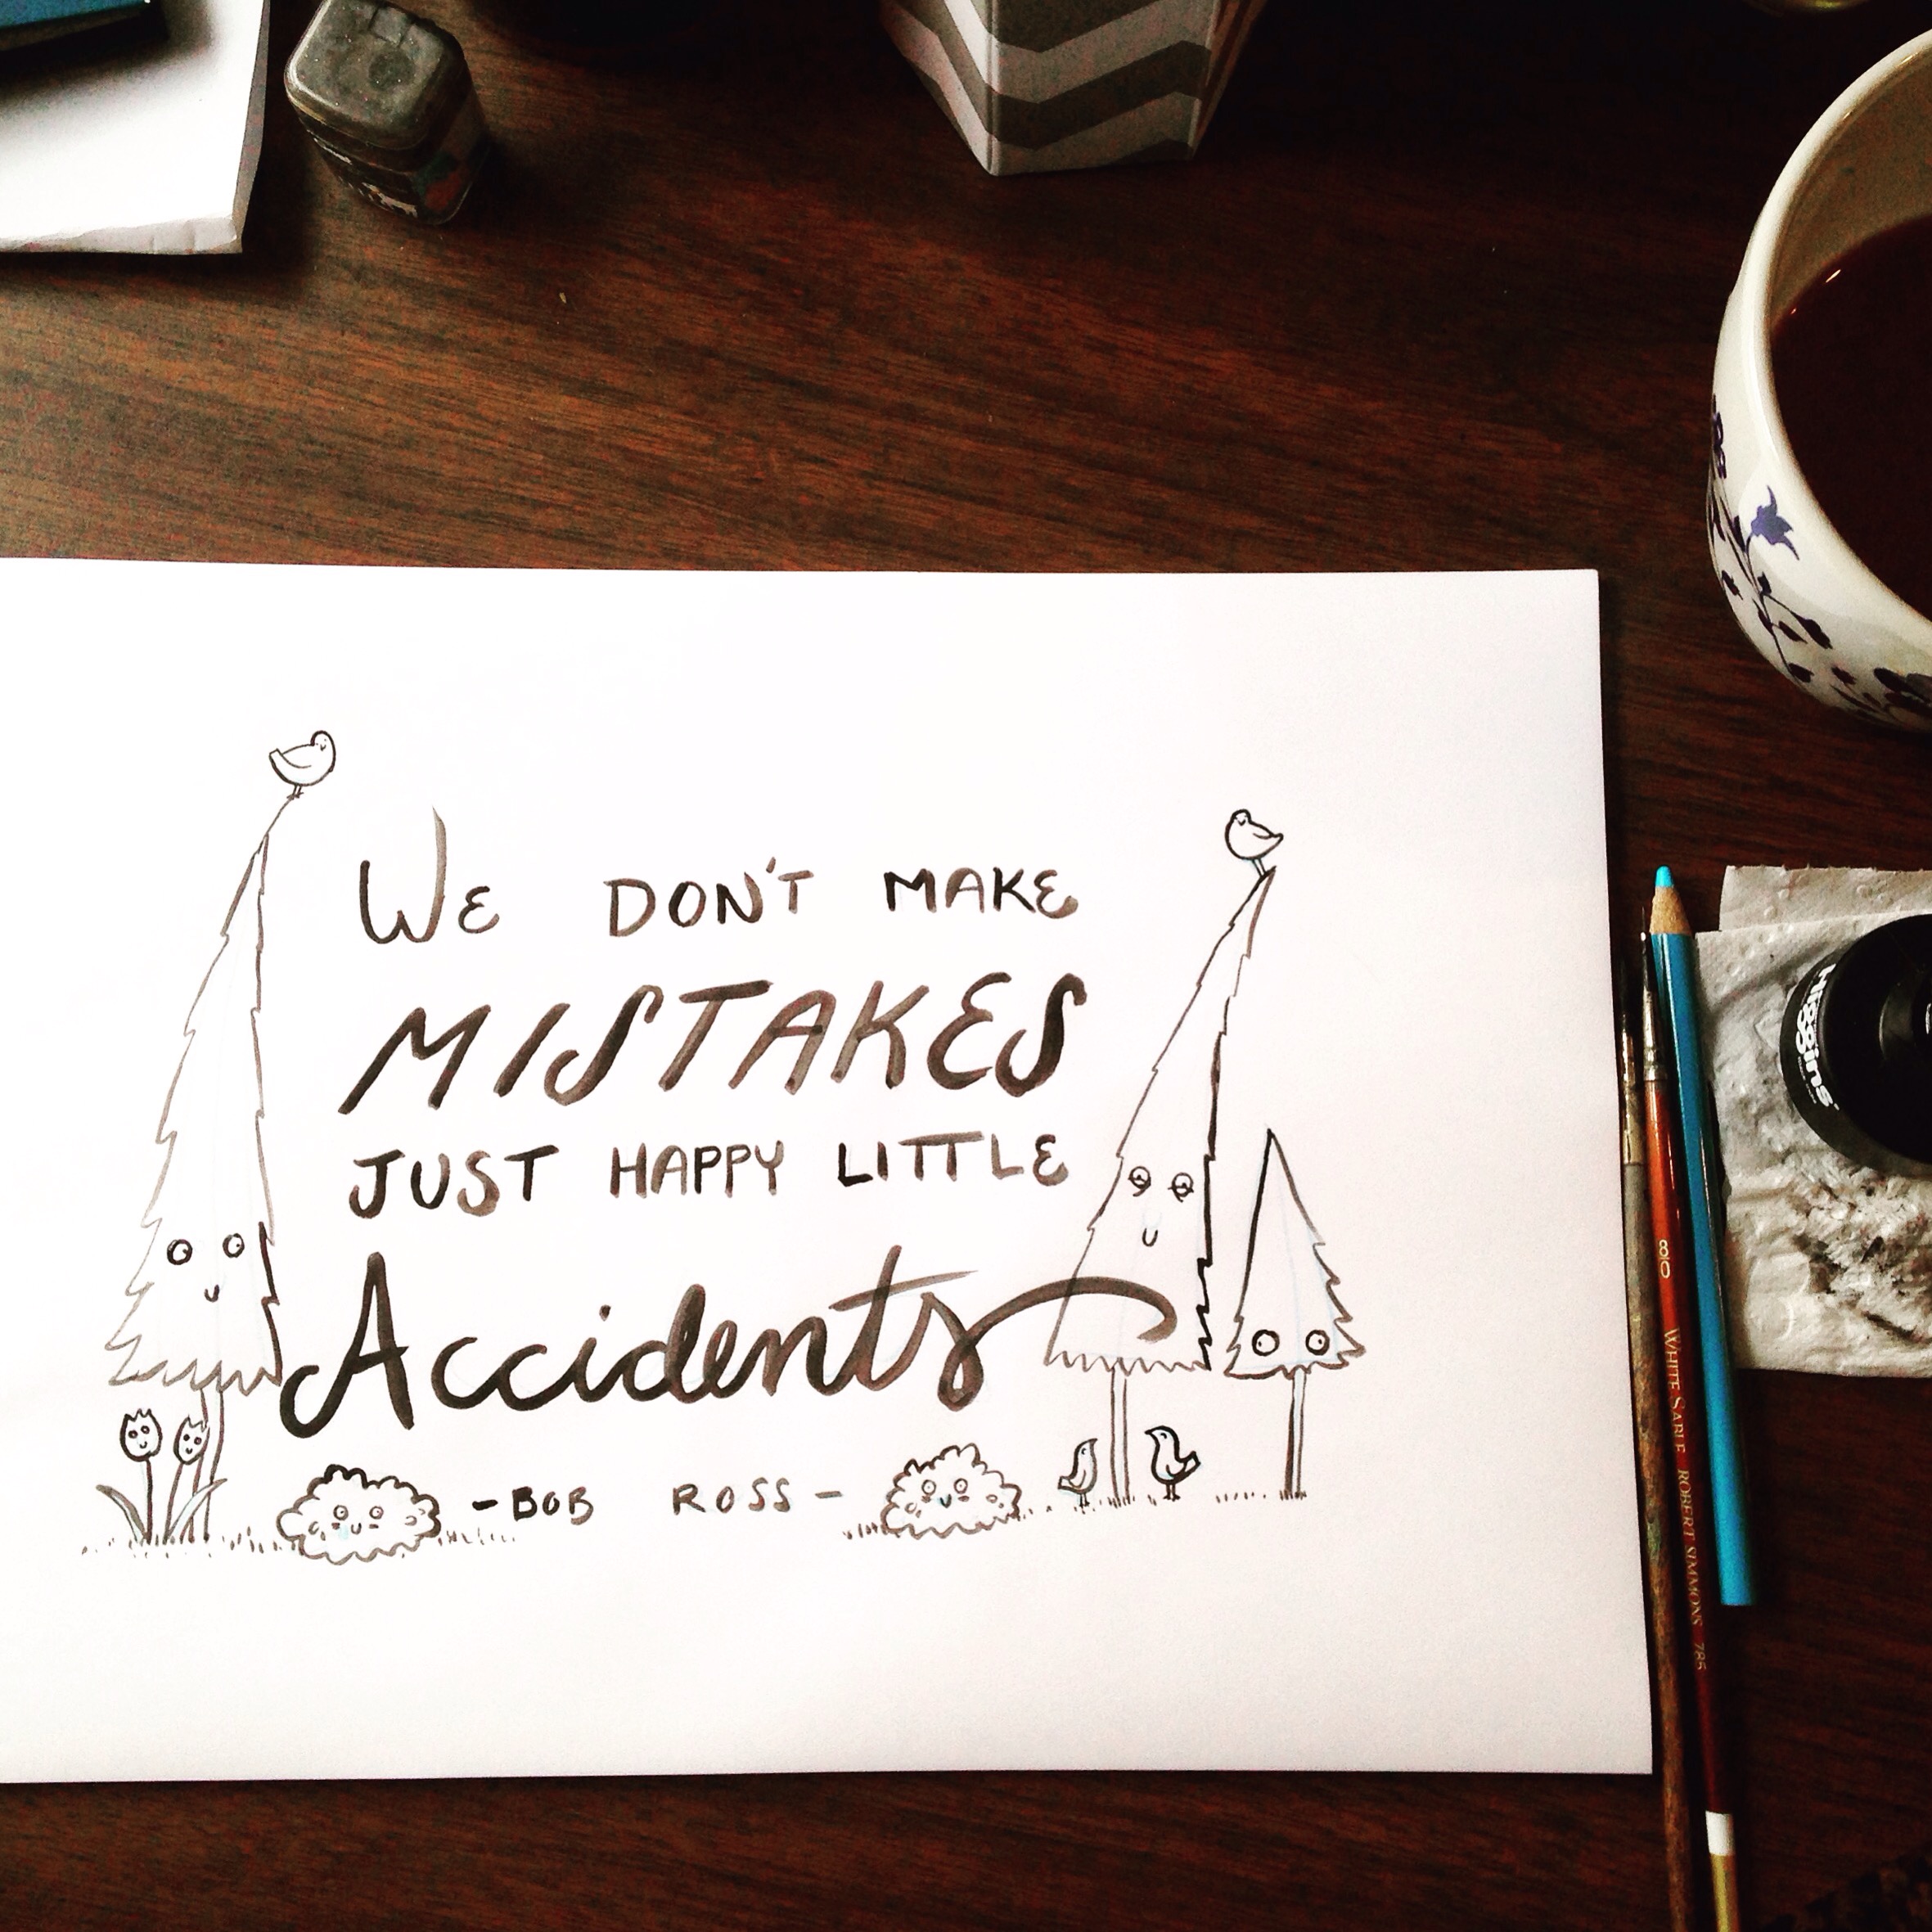 We DON'T MAKE
MISTAKES
JUST HAPPY LITTLE
Accidents
-BOB ROSS-
Higgins
8/0 WHITE SABLE ROBERT SIMMONS 785